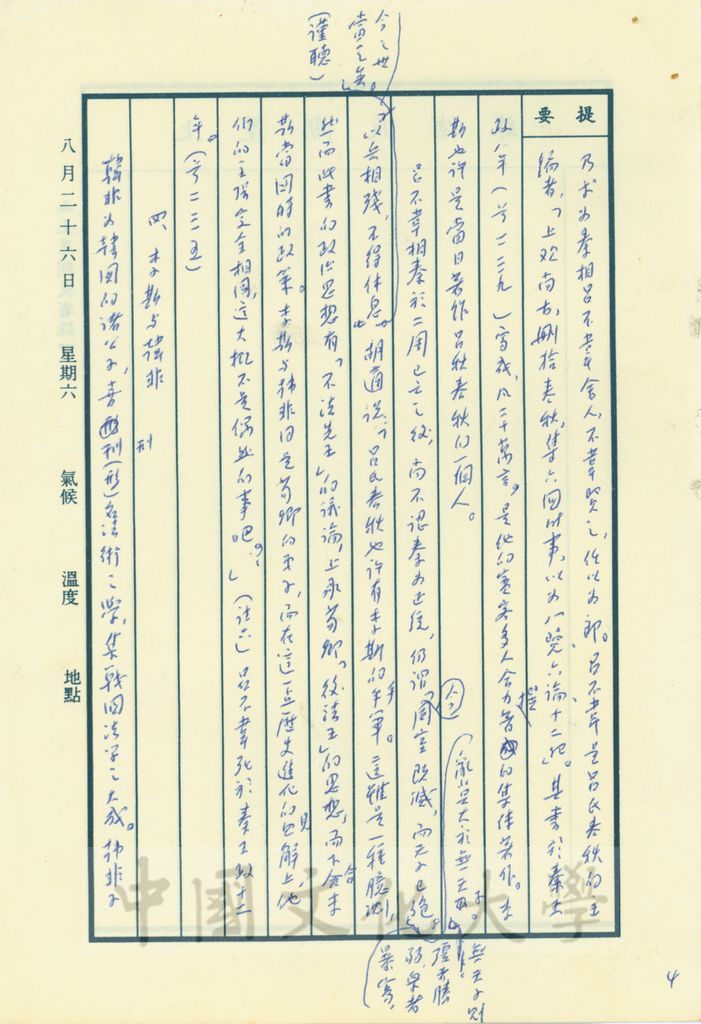 提要
乃求为秦相吕不韋舍人，不韋賢之，任以为郎。吕不韋是吕氏春秋的主
編者，「上观尚古，删拾春秋，集六国时事，以为八覽、六論、十二紀。」其書於秦王
政八年（前二三九）寫成，凡二十萬言，是他的賓客多人合力撰的集体著作。李
斯也许是當日著作吕氏春秋的一個人。
吕不韋相秦於二周已亡之後，尚不認秦为正統，仍謂「周室既滅，而天子已絕。
亂莫大於無天子。
無天子則
强者勝
弱，眾者
暴寡，
以兵相殘，不得休息。
今之世
當之矣。」
（謹聽）
胡適說：「吕氏春秋也许有李斯的手筆。這雖是一種臆測，
然而此書的政治思想有「不法先王」的議論，上承荀卿「後法王」的思想，而下合李
斯當國時的政策。李斯与韩非同是荀卿的弟子，而在這一点歷史進化的見解上，他
们的主張完全相同，這大概不是偶然的事吧？」（註六）吕不韋死於秦王政十二
年。（前二三五）
四、李斯与韓非
韓非为韓国的諸公子，喜刑（形）名法術之學，集戰国法家之大成。韩非子
刑
八月二十六日 星期六 氣候 溫度 地點
中國文化大學
4